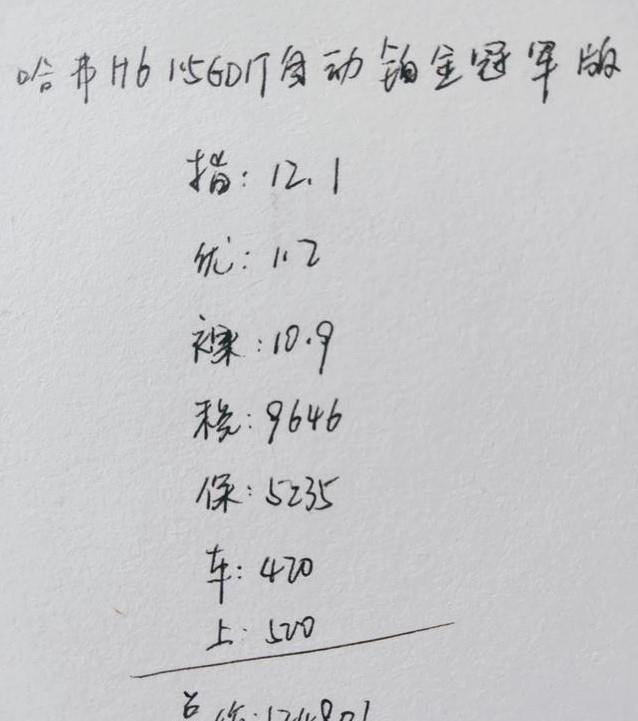 哈弗H6 1.5GDIT自动铂金冠军版
指: 12.1
优: 1.2
裸: 10.9
税: 9646
保: 5235
车: 420
上: 500